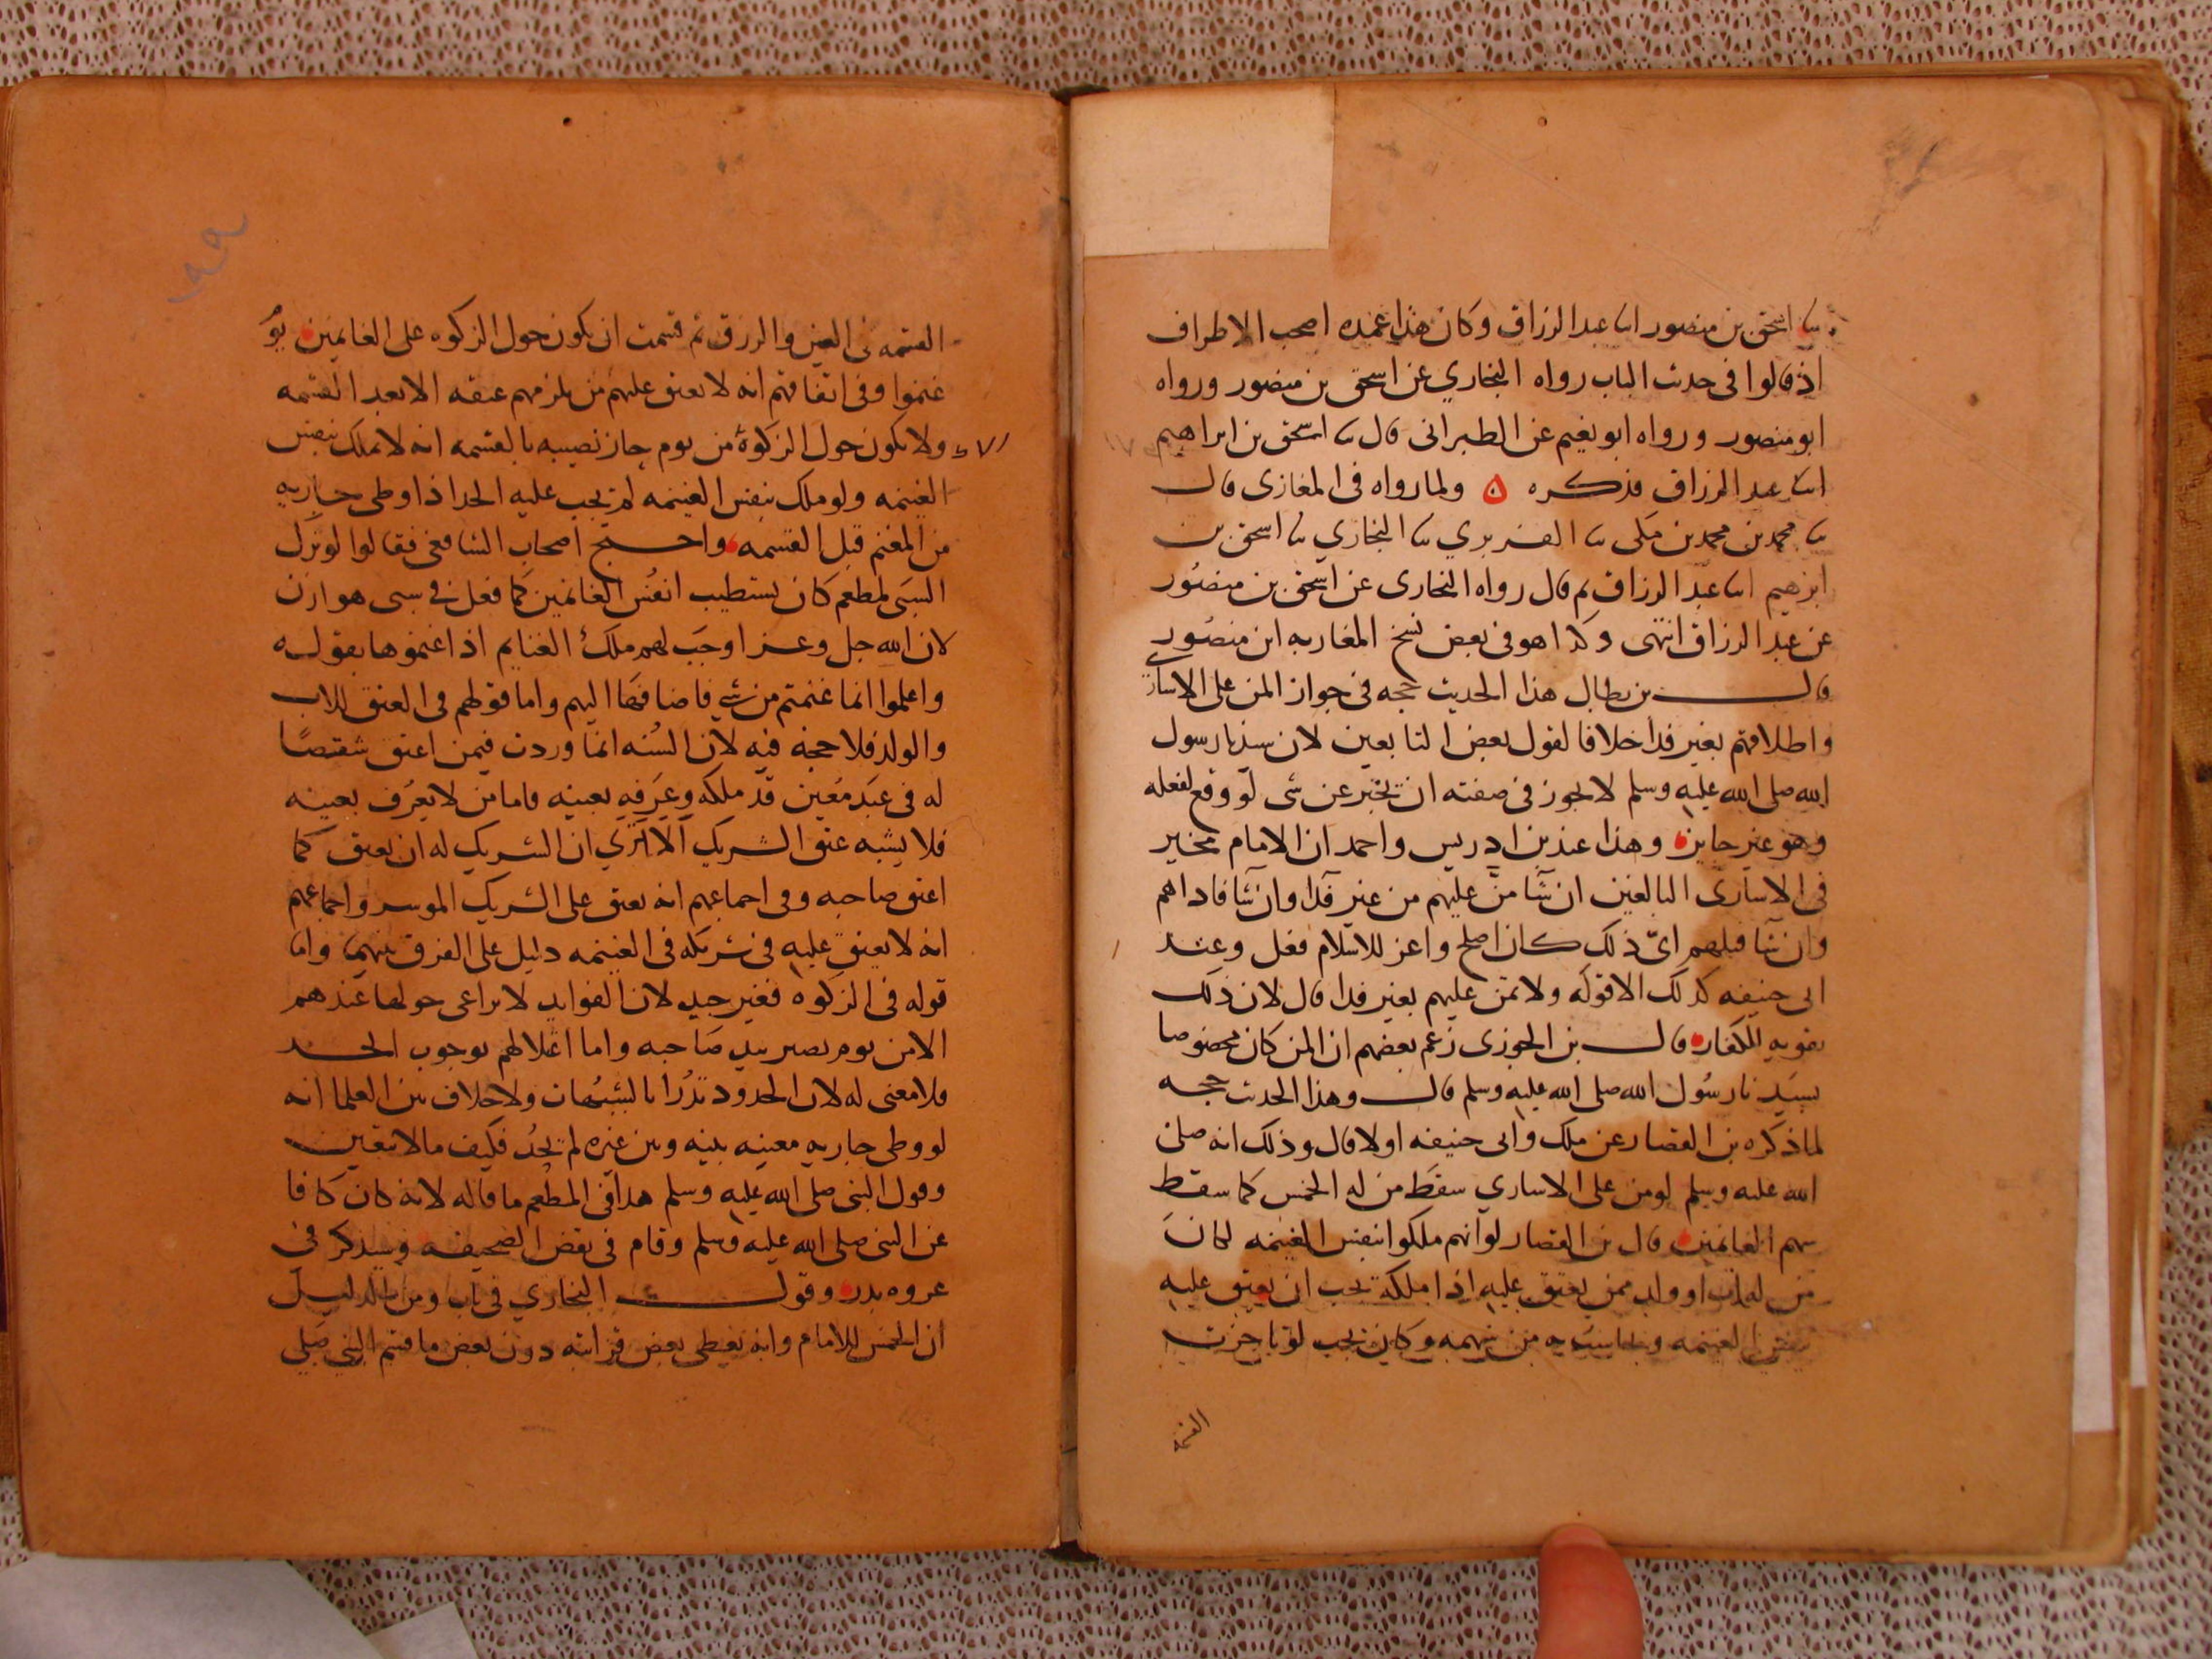 ثنا اسحق بن منصور انا عبد الرزاق وكان هذا عمده اصحب الاطراف
اذ قالوا فى حدىث الباب رواه البخاري عن اسحق بن منصور ورواه
ابو منصور ورواه ابو نعيم عن الطبرانى قال ثنا اسحق بن ابراهيم
انا عبد الرزاق فذكره ۵ ولما رواه فى المغازى قال
ثنا محمد بن محمد بن مكى ثنا الفربري ثنا البخاري ثنا اسحق بن
ابرهيم انا عبد الرزاق ثم قال رواه البخارى عن اسحق بن منصور
عن عبد الرزاق انتهى وكذا هو فى بعض نسخ المغاربه ابن منصور
قال بن بطال هذا الحديث حجه فى جواز المن على الاسارى
واطلاقهم بغير فدا خلافا لقول بعض التابعين لان سيدنا رسول
الله صلى الله عليه وسلم لا يجوز فى صفته ان يخبر عن شى لو وقع لفعله
وهو غير جايز وهذا عند بن ادريس واحمد ان الامام مخير
فى الاسارى البالغين ان شا منّ عليهم من غير فدا وان شا فاداهم
وان شا قتلهم اىّ ذلك كان اصلح واعز للاسلام فعل وعند
ابى حنيفه كذلك الا قوله ولا يمن عليهم بغير فدا قال لان ذلك
تقويه للكفار قال بن الجوزى زعم بعضهم ان المن كان مخصوصا
بسيدنا رسول الله صلى الله عليه وسلم قال وهذا الحدىث حجه
لما ذكره بن القصار عن ملك وابى حنيفه اولا قال وذلك انه صلى
الله عليه وسلم لو من على الاساري سقط من له الخمس كما سقط
سهم الغانمين قال بن القصار لو انهم ملكوا بنفس الغنيمه لكان
من له اب او ولد ممن يعتق عليه اذا ملكه يجب ان يعتق عليه
بنفس الغنيمه ويحاسب به من سهمه وكان يجب لو تاخرت
القسمه
القسمه فى العين والورق ثم قسمت ان يكون حول الزكوه على الغانمين يوم
غنموا وفى اتفاقهم انه لا يعتق عليهم من يلزمهم عتقه الا بعد القسمه
ولا يكون حول الزكوة من يوم حاز نصيبه بالقسمه انه لا يملك بنفس
الغنيمه ولو ملك بنفس الغنيمه لم يجب عليه الحد اذا وطى جاريه
من المغنم قبل القسمه واحتج اصحاب الشافعى فقالوا لو ترك
السبى لمطعم كان يستطيب انفس الغانمين كما فعل فى سبى هوازن
لان الله جل وعز اوجب لهم ملك الغنايم اذا غنموها بقوله
واعلموا انما غنمتم من شي فاضافها اليهم واما قولهم فى العتق للاب
والولد فلا حجه فيه لان السنه انما وردت فيمن اعتق شقصا
له فى عبد معين قد ملكه وعرفه بعينه فاما من لا يعرف بعينه
فلا يشبه عتق الشريك الا ترى ان الشريك له ان يعتق كما
اعتق صاحبه وفى اجماعهم انه يعتق على الشريك الموسر واجماعهم
انه لا يعتق عليه فى شركه فى الغنيمه دليل على الفرق بينهما واما
قوله فى الزكوه فغير جيد لان الفوايد لا يراعى حولها عندهم
الا من يوم تصير بيد صاحبه واما اعلالهم بوجوب الحد
فلا معنى له لان الحدود تدرا بالشبهات ولا خلاف بين العلما انه
لو وطى جاريه معينه بينه وبين غيره لم يحد فكيف مالا يتعين
وقول النبى صلى الله عليه وسلم هذا فى المطعم ما قاله لانه كان كافا
عن النبى صلى الله عليه وسلم وقام فى نقض الصحيفه وسيذكر فى
غزوه بدر وقول البخاري فى باب ومن الدليل
ان الخمس للامام وانه يعطى بعض قرابته دون بعض ما قسم النبي صلى